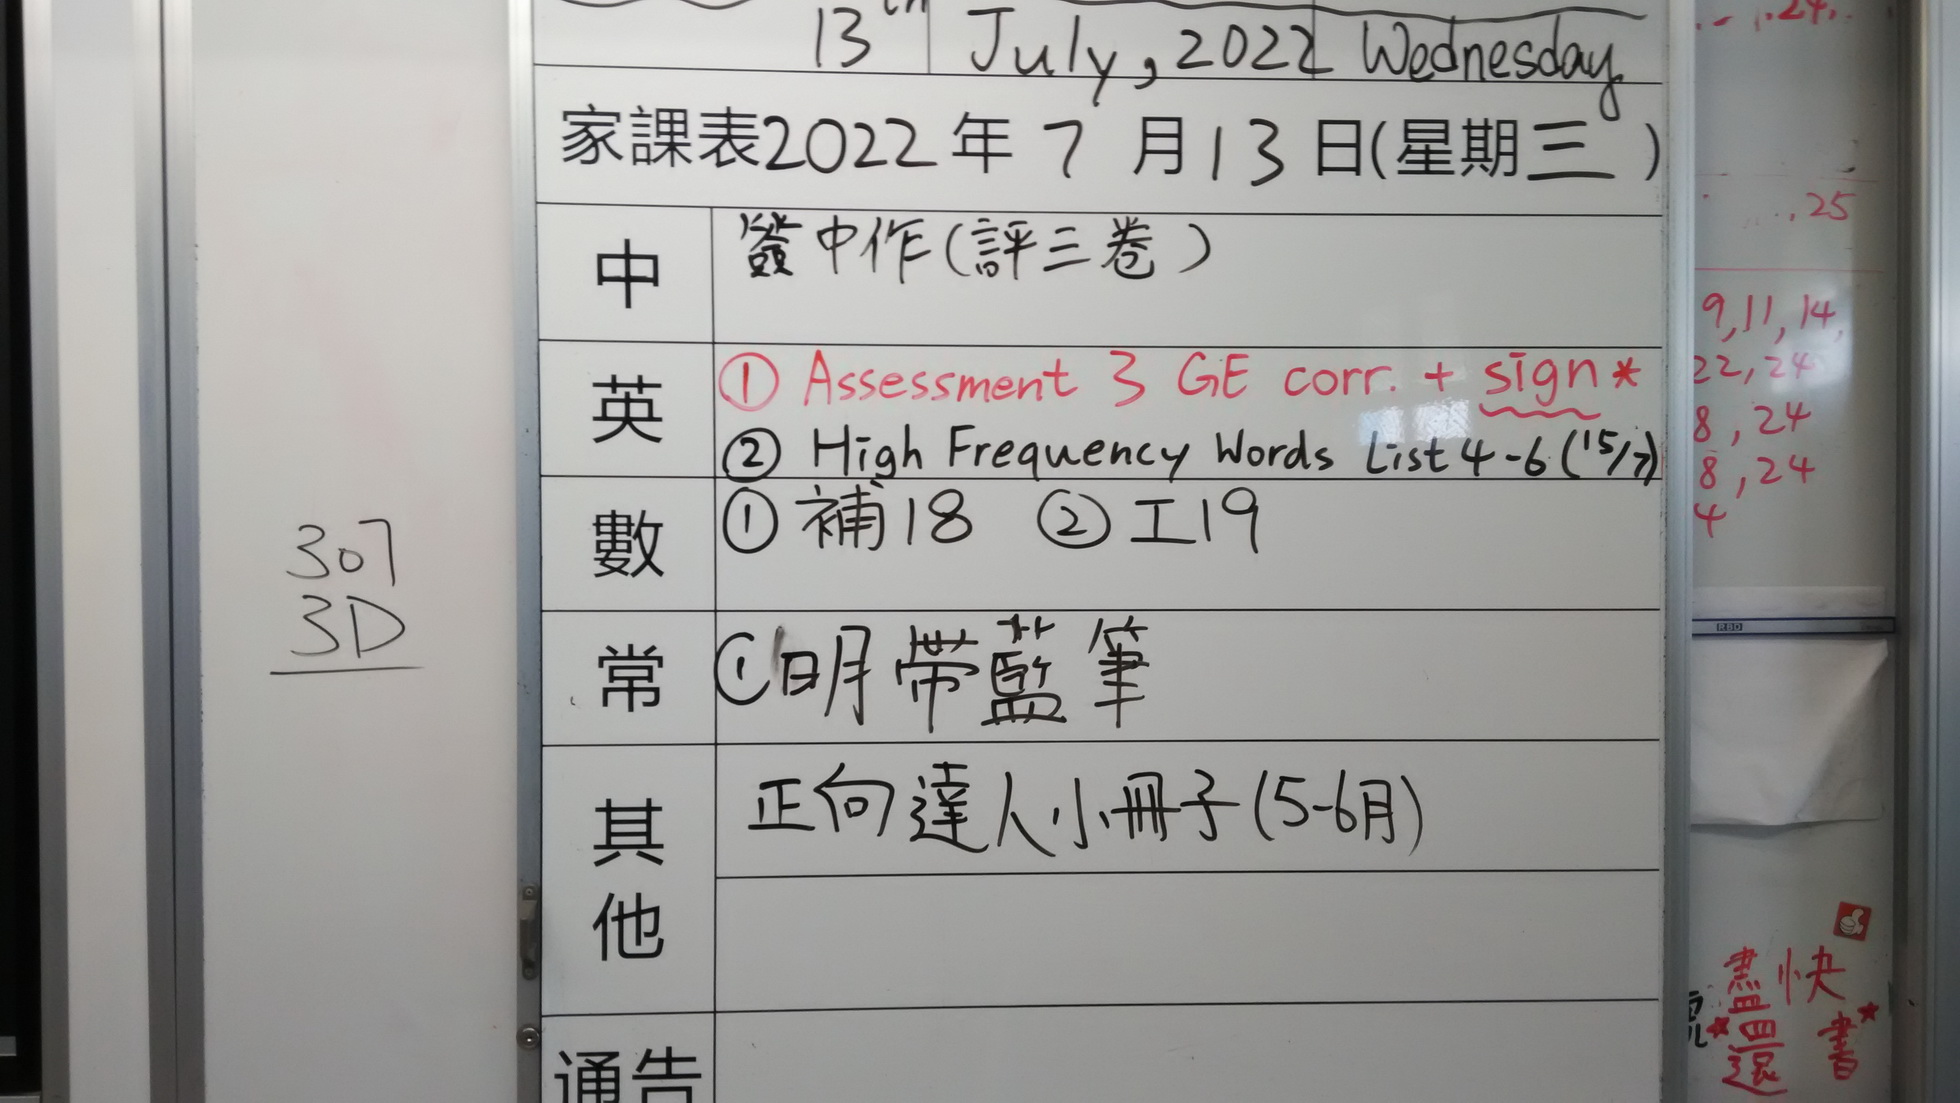 13th July, 2022 Wednesday
家課表2022年7月13日(星期三)
中
簽中作(評三卷)
英
① Assessment 3 GE corr. + sign*
② High Frequency Words List 4-6 (15/7)
數
①補18 ②工19
常
①明带藍筆
其他
正向達人小冊子(5-6月)
通告
307
3D
24
25
9,11,14,
22,24
8,24
8,24
4
RBD
盡快
還書